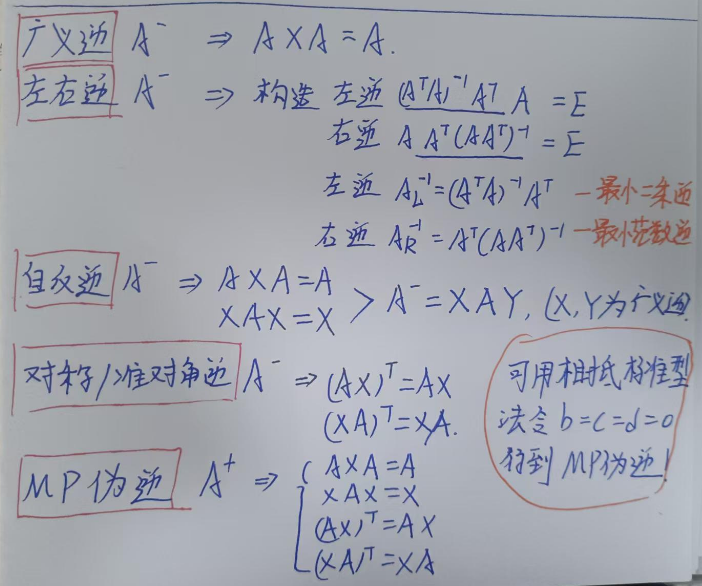 广义逆 A⁻ ⇒ AXA = A.
左右逆 A⁻ ⇒ 构造 左逆 (AᵀA)⁻¹Aᵀ A = E
右逆 A Aᵀ(AAᵀ)⁻¹ = E
左逆 A_L⁻¹ = (AᵀA)⁻¹Aᵀ —最小二乘逆
右逆 A_R⁻¹ = Aᵀ(AAᵀ)⁻¹ —最小范数逆
自反逆 A⁻ ⇒ AXA = A
XAX = X > A⁻ = XAY, (X,Y为广义逆)
对称/准对角逆 A⁻ ⇒ (AX)ᵀ = AX
(XA)ᵀ = XA.
可用相抵标准型
法令 b=c=d=0
得到 MP伪逆!
MP伪逆 A⁺ ⇒ { AXA = A
XAX = X
(AX)ᵀ = AX
(XA)ᵀ = XA